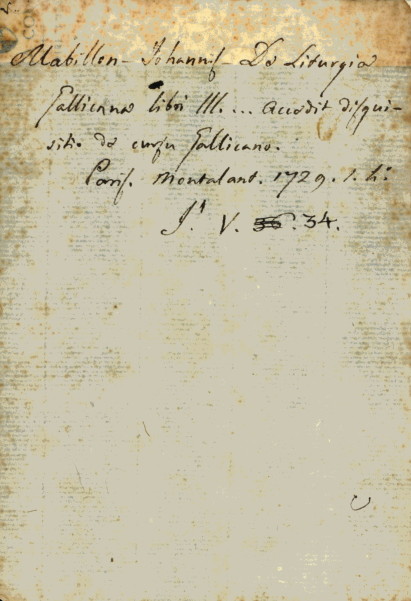 Mabillon - Johannis - De Liturgia
Gallicana libri III. ... Accedit disqui-
sitio de cursu Gallicano.
Paris. Montalant. 1729. 1. h.
V. 36. 34.